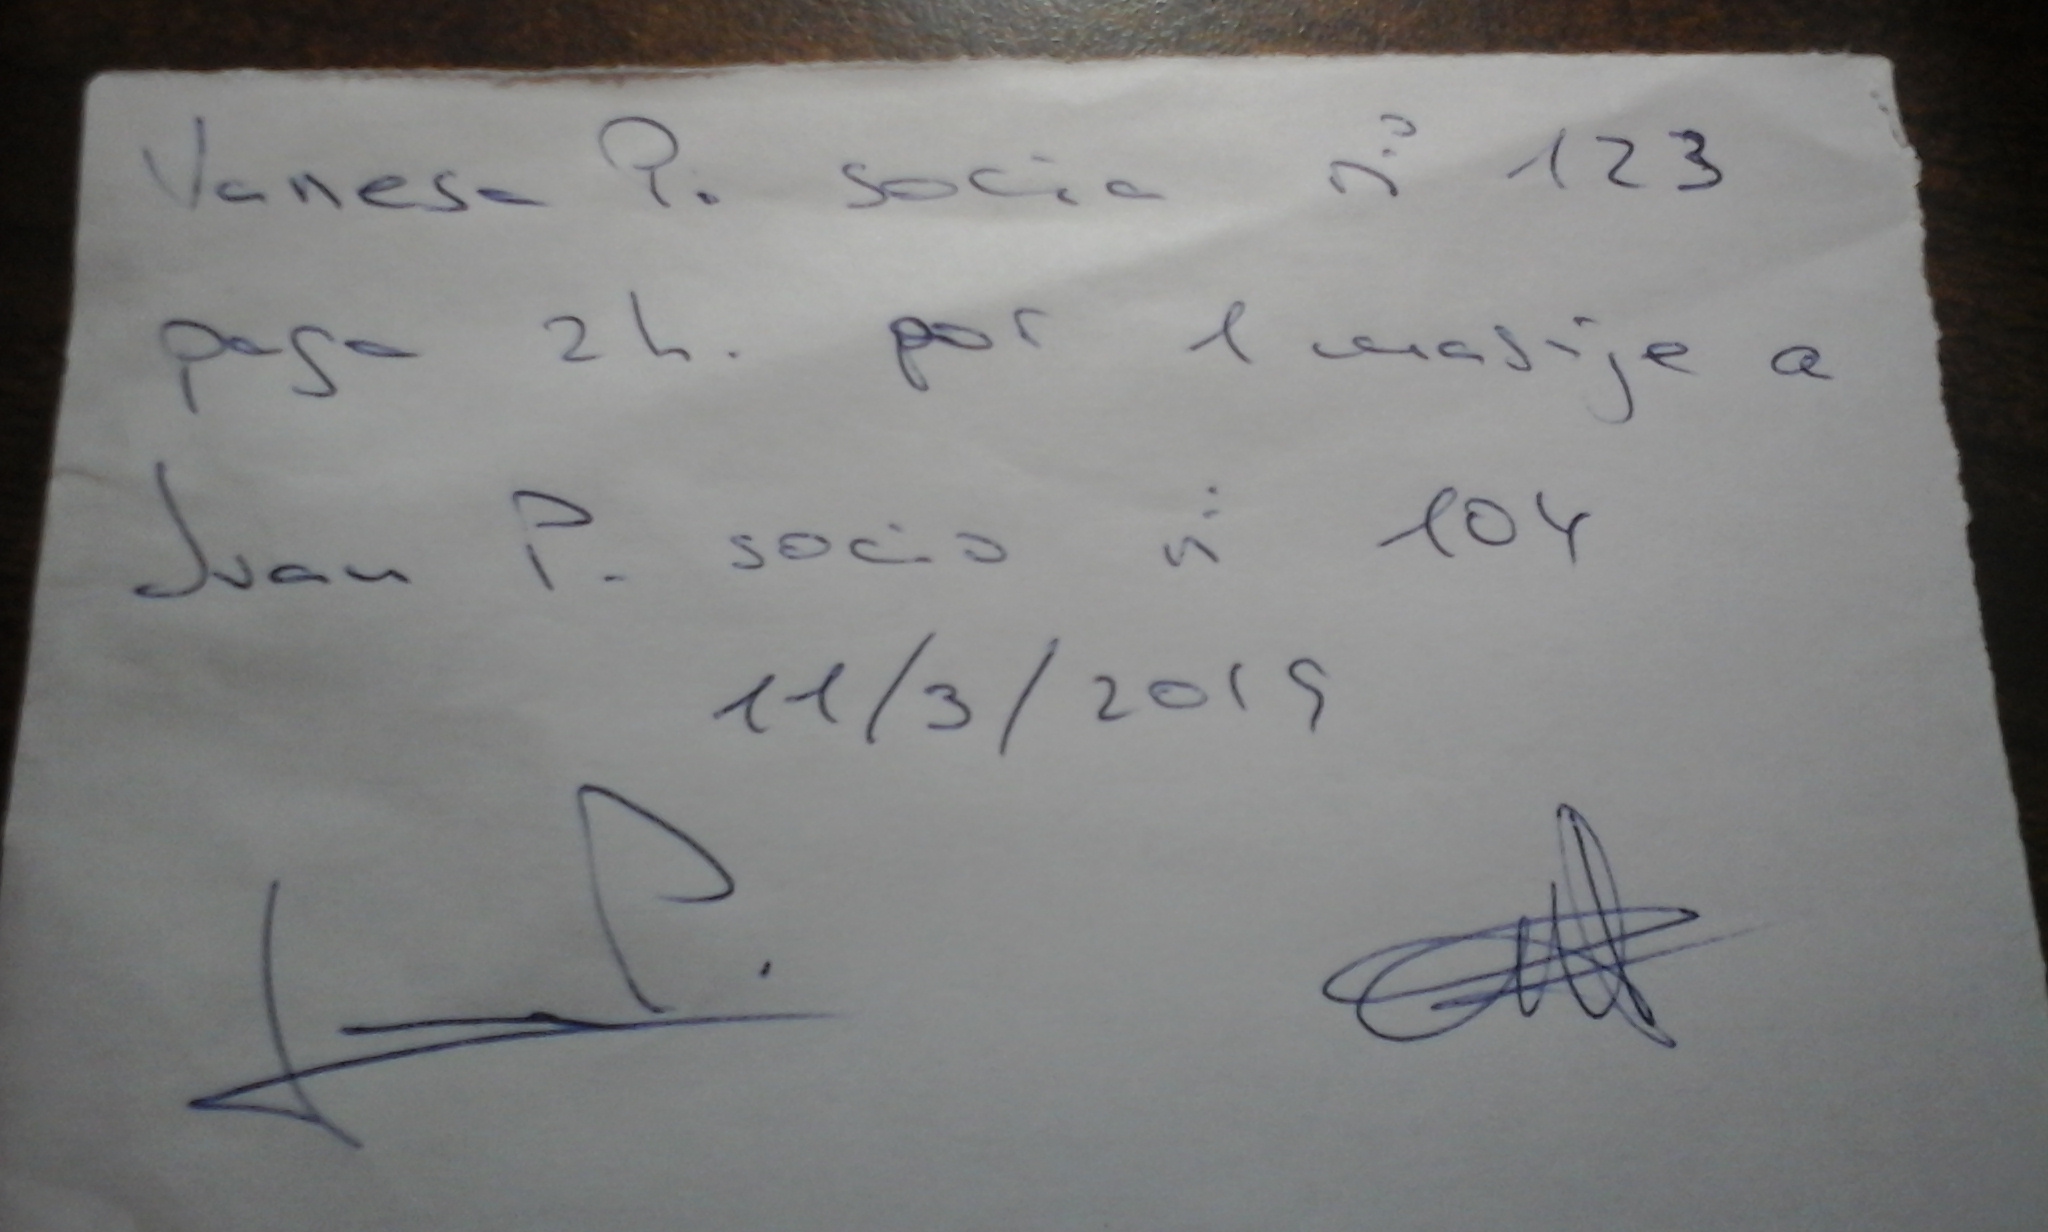 Vanesa P. socia nº 123
paga 2h. por 1 masaje a
Juan P. socio nº 104
11/3/2019
P.